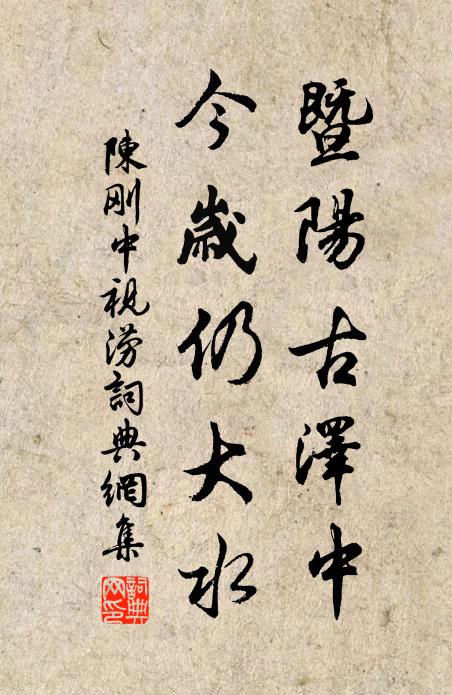 暨陽古澤中
今歲仍大水
陳剛中視澇詞典網集
詞典网印